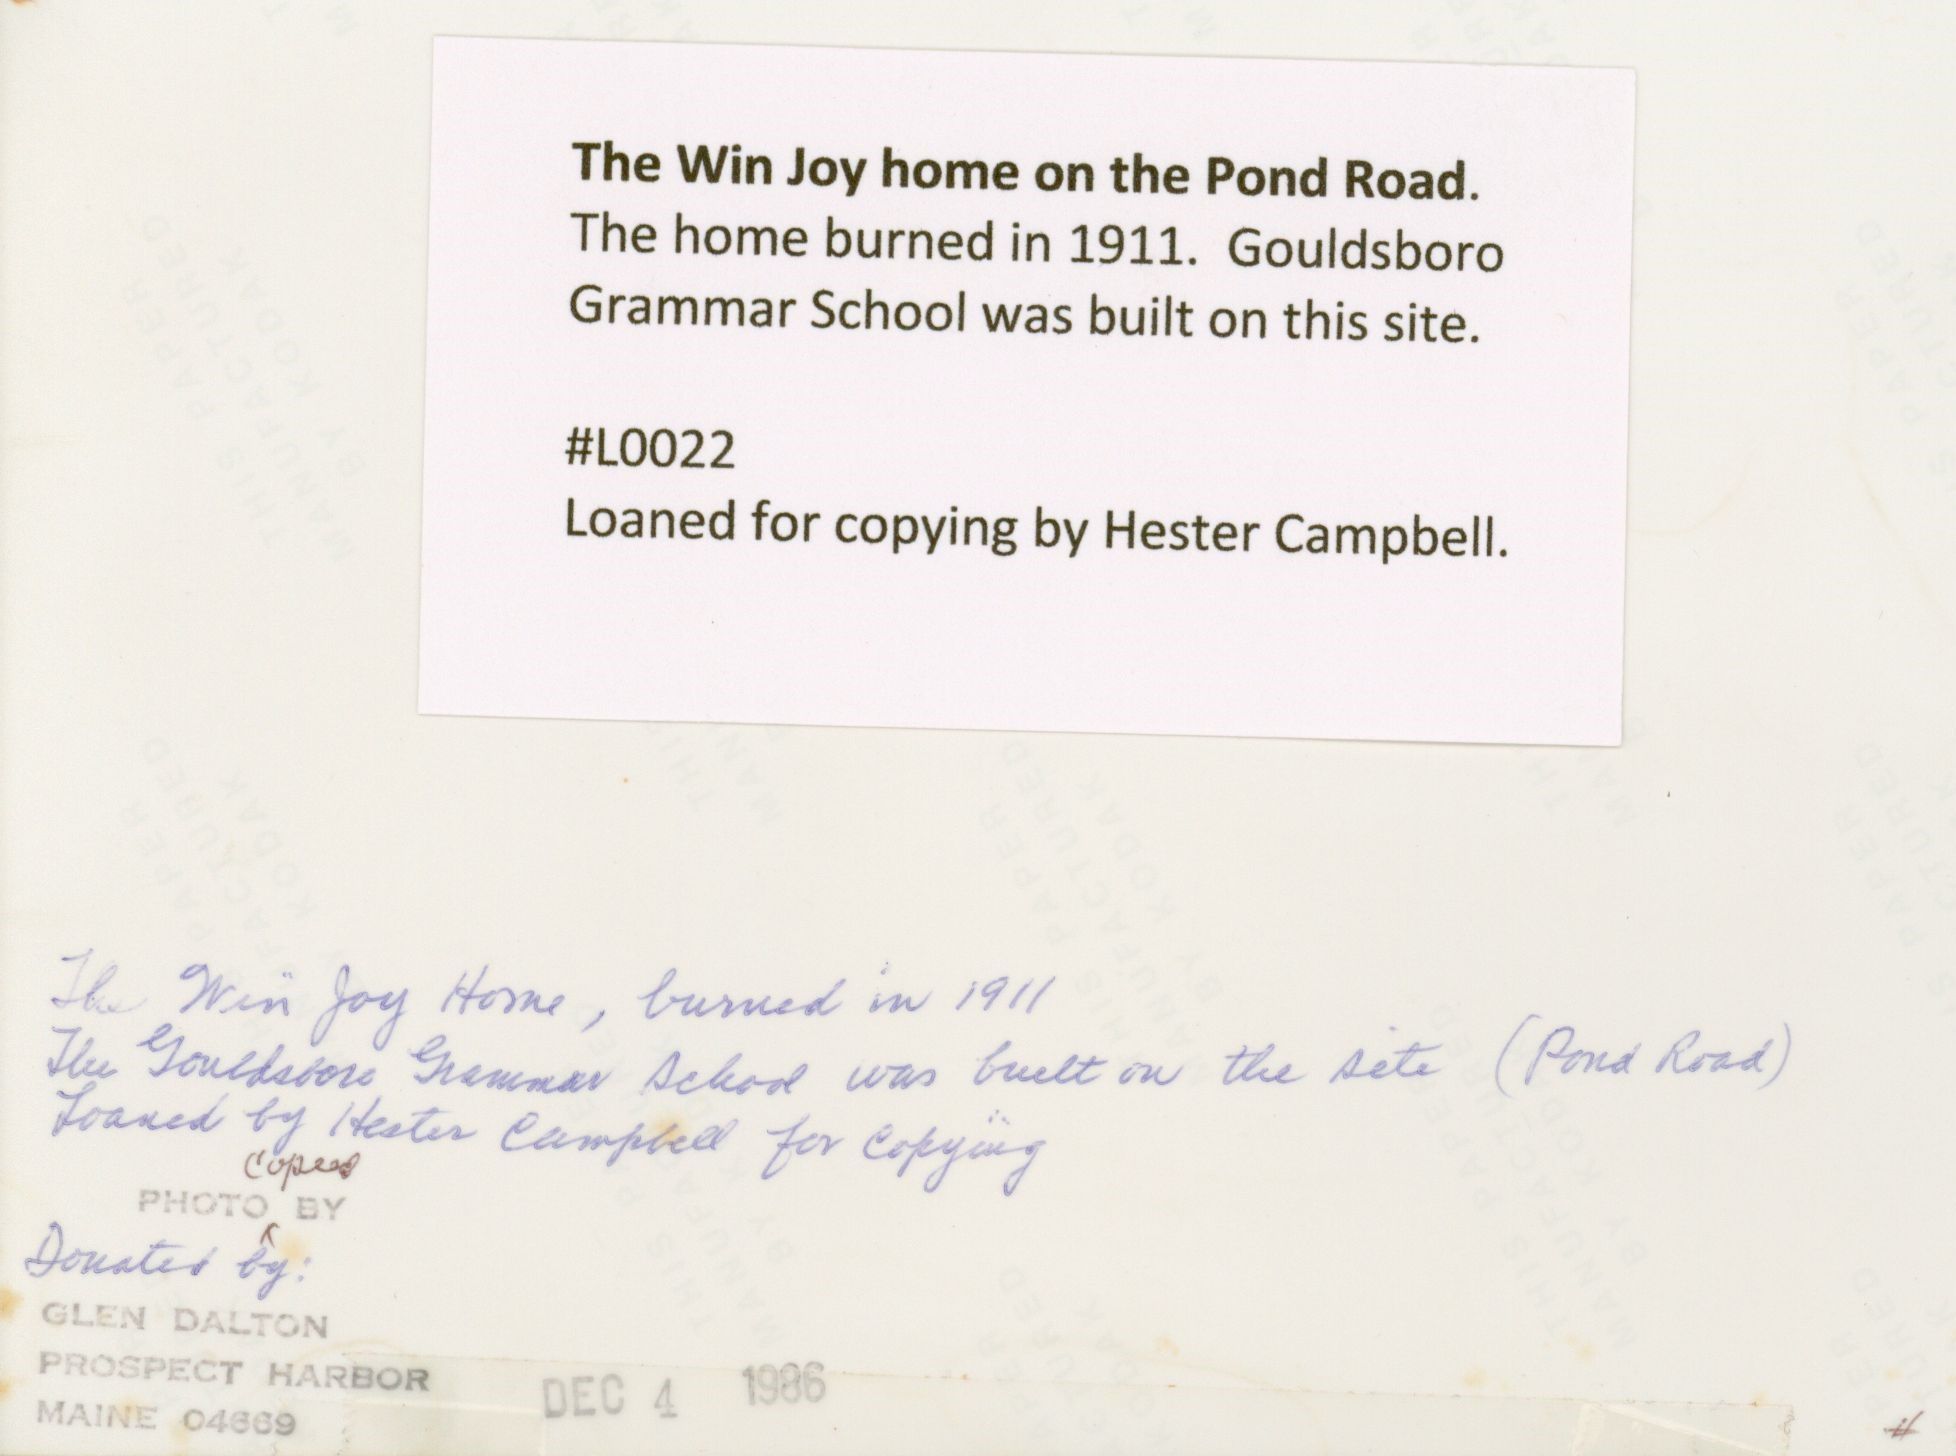 The Win Joy home on the Pond Road.
The home burned in 1911.  Gouldsboro
Grammar School was built on this site.
#L0022
Loaned for copying by Hester Campbell.
The Win Joy Home, burned in 1911
The Gouldsboro Grammar School was built on the site (Pond Road)
Loaned by Hester Campbell for copying
copied
PHOTO BY
Donated by:
GLEN DALTON
PROSPECT HARBOR
MAINE 04669
DEC 4 1986
#
THIS PAPER
MANUFACTURED
BY KODAK